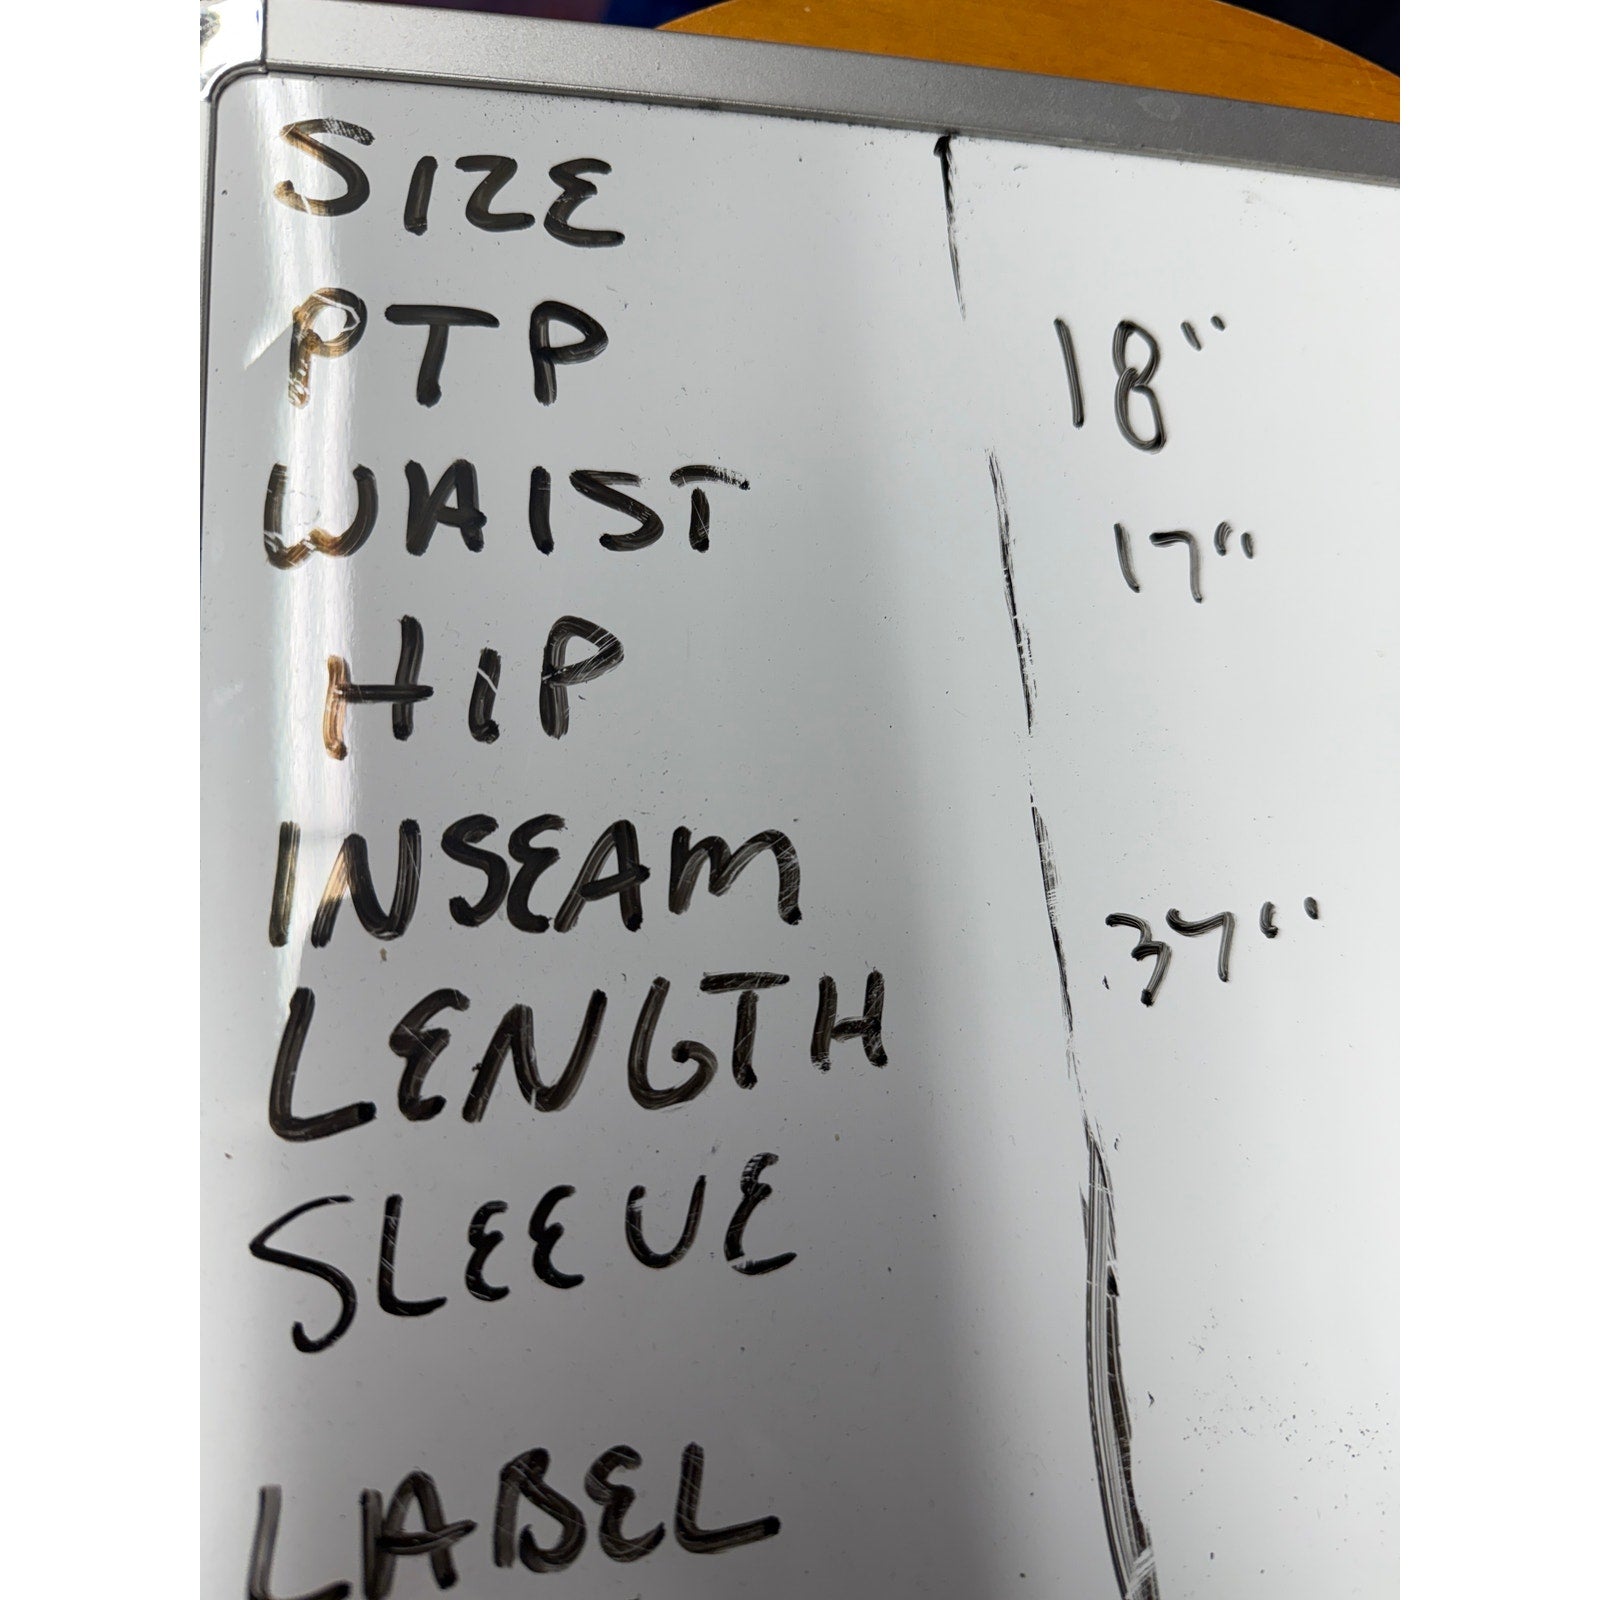 SIZE
PTP 18"
WAIST 17"
HIP
INSEAM
LENGTH 37"
SLEEVE
LABEL